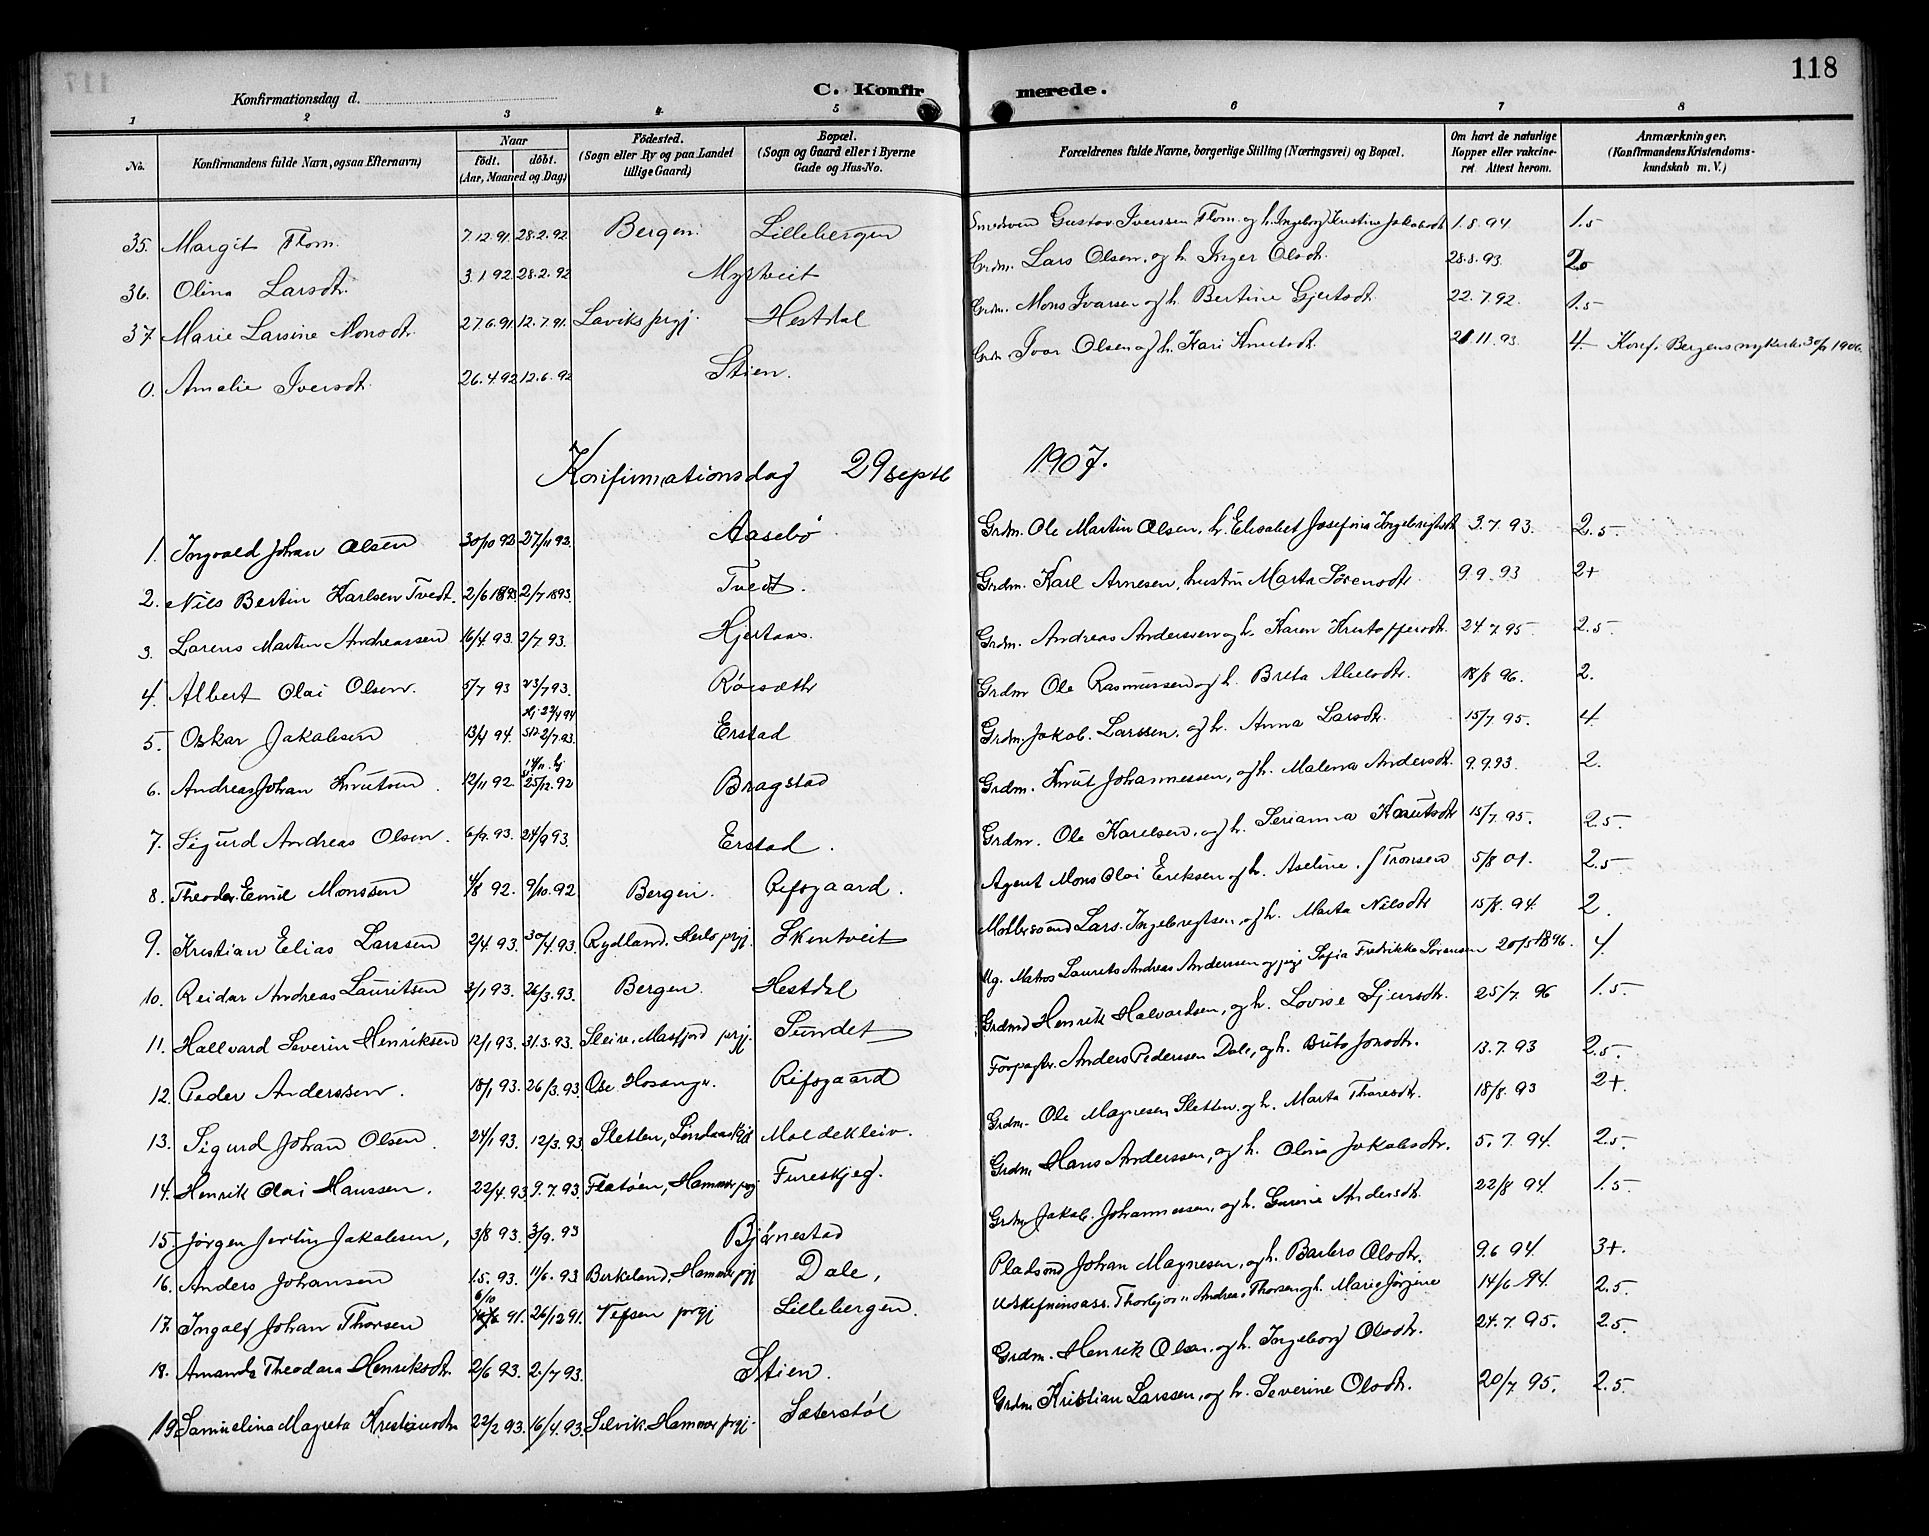 118
Konfirmationsdag d.
C. Konfirmerede.
1 2 3 4 5 6 7 8
No. Konfirmandens fulde Navn, ogsaa Efternavn) Naar födt. döbt. (Aar, Maaned og Dag) Födested. (Sogn eller By og paa Landet tillige Gaard) Bopæl. (Sogn og Gaard eller i Byerne Gade og Hus-No. Forældrenes fulde Navne, borgerlige Stilling (Næringsvei) og Bopæl. Om havt de naturlige Kopper eller vakcineret Attest herom. Anmærkninger. (Konfirmandens Kristendomskundskab m. V.)
35. Margit Flom. 7.12.91. 28.2.92 Bergen. Lillebergen Gustav Iverssen Flom og h. Ingeborg Kristine Jakobsdt 1.8.94 1.5
36. Olina Larsdt. 3.1.92 28.2.92 Myhrtveit Grdm. Lars Olsen, og h. Inger Olsdt. 28.8.93 2.
37 Marie Larsine Monsdt. 27.6.91. 12.7.91. Laviks prgj. Hestdal Grdm. Mons Ivarsen og h. Bertine Gjertsdt. 22.7.92. 1.5
0. Amalie Iversdt. 26.4.92 12.6.92 Stien. Grdm Ivar Olsen og h. Kari Knutsdt. 21.11.93. 4 Konf. i Bergens nykirke 1906.
Konfirmationsdag 29 septb 1907.
1. Ingvald Johan Olsen 30/10 92 27/11 92. Aasebö Grdm. Ole Martin Olsen, h. Elisabet Josefine Ingebrigtsdt 3.7.93. 2.5.
2. Nils Bertin Karlsen Tvedt. 2/6 1893 2/7 1893. Tvedt. Grdm. Karl Arnesen, hustru Marta Sørensdt. 9.9.93 2+
3. Larens Martin Andreassen 16/4 93. 2/7 93. Hjertaas. Grdm. Andreas Andersen og h. Karen Kristoffersdt. 24.7.95. 2.5.
4. Albert Olai Olsen. 5/7 93 23/7 93. Röiosæth Grdm Ole Rasmussen og h. Brita Akselsdt. 18/8 96. 2.
5. Oskar Jakobsen 13/4 94. Hj. 22/4 94 Erstad Grdm. Jakob Larssen, og h. Anna Larsdt. 15/7 95. 4
6. Andreas Johan Knutsen 12/11 92. 14/11. hj 25/12. 92 Bragstad Grdm. Knut Johannessen, og h. Malena Andersdt. 9.9.93. 2.
7. Sigurd Andreas Olsen. 6/9. 93. 24/9 93. Erstad. Grdm. Ole Karelsen, og h. Serianna Knutsdt 15/7 95. 2.5.
8. Theodor Emil Monssen 4/8 92. 9/10. 92 Bergen. Rifsgaard. Agent Mons Olai Eriksen og h. Aseline f. Tronsen 5/8 01. 2.5
9. Kristian Elias Larssen 2/4 93. 30/4 93. Rydland, Herlø prgj. Skintveit Lars Ingebregtsen, og h. Marta Nilsdt 15/8. 94. 2.
10. Reidar Andreas Lauritsen 3/1 93. 26/3. 93. Bergen. Hestdal Ug. Matros Laurits Andreas Anderssen og pige Sofia Fredrikke Sørensen 20/5 1896. 4
11. Hallvard Severin Henriksen 12/1 93. 31.3.93. Sleire, Masfjord prgj. Sundet Grdmd Henrik Halvardsen, og h. Lovise Sjursdt. 25/7. 96 1.5.
12. Peder Anderssen. 18/1 93. 26/3 93. Ose Hosanger. Rifsgaard Forpagter Anders Pederssen Dale, og h. Brita Jonsdt. 13.7.93 2.5.
13. Sigurd Johan Olsen. 24/1 93. 12/3. 93 Sletten, Lindaas Moldekleiv. Grdm. Ole Magnesen Sletten og h. Marta Thoresdt. 18/8. 93 2+.
14. Henrik Olai Hanssen. 22/4. 93. 9.7.93. Flatöen, Hammer prgj Fureskjeg. Grdm. Hans Anderssen, og h. Oline Jakobsdt. 5.7.94. 2.5
15. Jørgen Jertin Jakobsen, 3/8 93. 3/9. 93 Bjørnestad Grdm Jakob Johannessen, og h. Gurine Andersdt. 22/8 94. 1.5.
16. Anders Johansen 1.5.93. 11/6. 93 Birkeland, Hammer prgj Dale, Pladsmd Johan Magnesen, og h. Barbro Olsdt. 9.6 94. 3+.
17. Ingolf Johan Thorsen 6/10 91. 26/12 91. Vefsen prgj Lillebergen. Thorbjørn Andreas Thorsen og h. Marie Jørgine 14/6 94. 2.5
18. Amanda Theodora Henriksdt. 2/6 93. 2./7 93. Stien. Grdm. Henrik Olsen, og h. Ingeborg Olsdt. 24.7.95. 2.5.
19. Samuelina Magreta Kristiansdt. 22/2 93. 16/4. 93. Selvik, Hammer prgj. Sæterstöl Grdm Kristian Larssen, og h. Severine Olsdt. 20/7 95. 2.5.